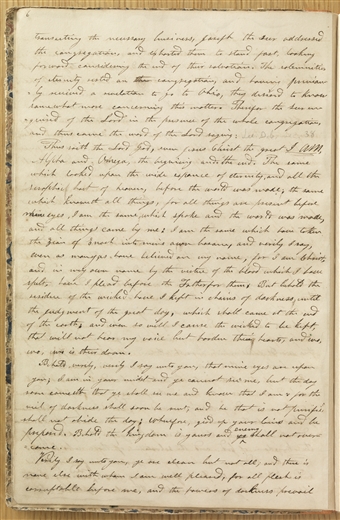 6
transacting the necessary business, Joseph the seer addressed
the congregation, and exhorted them to stand fast, looking
forward considering the end of their salvation. The solemnities
of eternity rested on the congregation, and having previous-
ly received a revelation to go to Ohio, they desired to know
somewhat more concerning this matter. Therefore the seer en-
quired of the Lord in the presence of the whole congregation,
and thus came the word of the Lord saying:
Thus saith the Lord God, even Jesus Christ the great I AM,
Alpha and Omega, the beginning and the end, The same
which looked upon the wide expanse of eternity, and all the
seraphic host of heaven, before the world was made; the same
which knoweth all things, for all things are present before
mine eyes, I am the same which spake and the world was made,
and all things came by me: I am the same which have taken
the Zion of Enoch into mine own bosom, and verily I say,
even as many as have believed on my name, for I am Christ,
and in mine own name by the virtue of the blood which I have
spilt, have I plead before the Father for them; But behold the
residue of the wicked have I kept in chains of darkness, until
the judgment of the great day, which shall come at the end
of the earth; and even so will I cause the wicked to be kept,
that will not hear my voice but harden their hearts, and wo,
wo, wo is their doom.
Behold, verily, verily I say unto you, that mine eyes are upon
you; I am in your midst and ye cannot see me, but the day
soon cometh that ye shall see me and know that I am: for the
veil of darkness shall soon be rent, and he that is not purified
shall not abide the day; Wherefore, gird up your loins and be
prepared. Behold the Kingdom is yours and the enemy shall not over-
come.
Verily I say unto you, ye are clean but not all; and there is
none else with whom I am well pleased, for all flesh is
corruptable before me, and the powers of darkness prevail